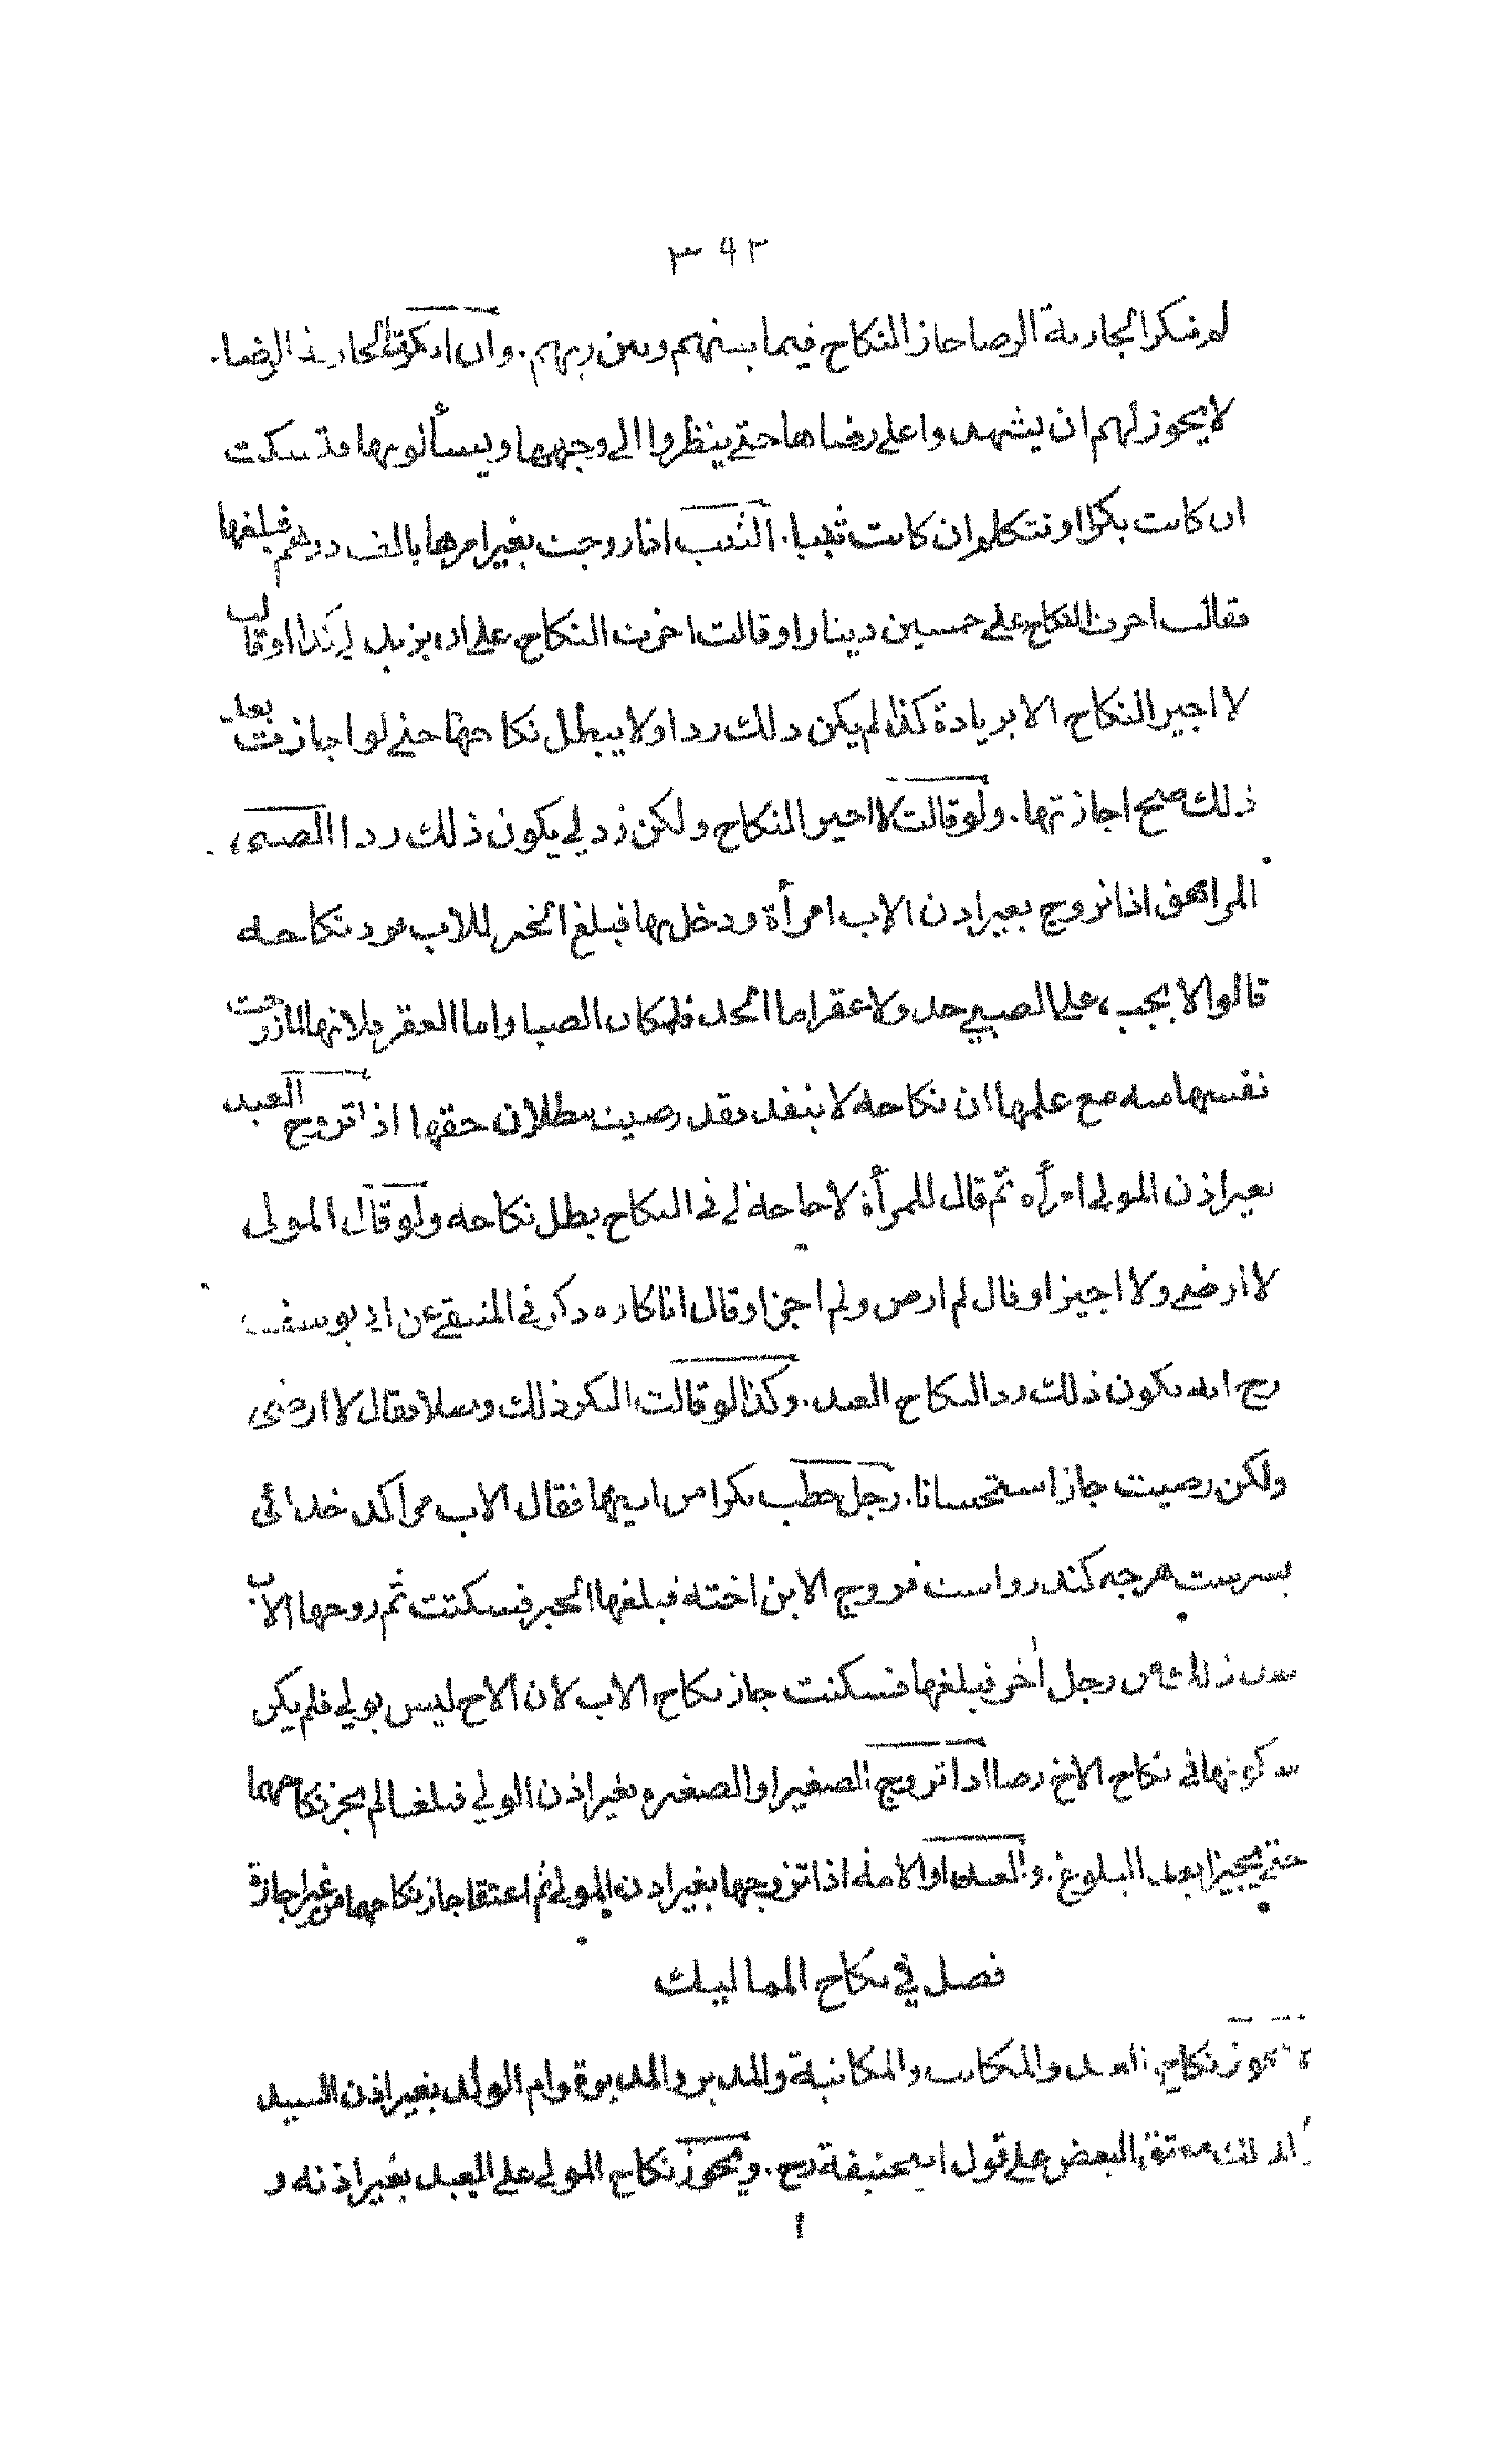 ٣٩٢
لم تنكر الجارية الرضا جاز النكاح فيما بينهم وبين ربهم. وان انكرت الجارية الرضا
لا يجوز لهم ان يشهدوا على رضاها حتى ينظروا الى وجهها ويسألونها وقد سكتت
ان كانت بكرا او تتكلم ان كانت ثيبا. الثيب اذا زوجت بغير امرها بالف درهم فبلغها
فقالت اجزت النكاح على خمسين دينارا او قالت اجزت النكاح على ان يزيد لي كذا او قالت
لا اجيز النكاح الا بزيادة كذا لم يكن ذلك ردا ولا يبطل نكاحها حتى لو اجازت بعد
ذلك صح اجازتها. ولو قالت لا اجيز النكاح ولكن زدلي يكون ذلك ردا الصبي
المراهق اذا تزوج بغير اذن الاب امرأة ودخل بها فبلغ الخبر للاب فرد نكاحه
قالوا لا يجب على الصبي حد ولا عقر اما الحد فلمكان الصبا واما العقر فلانها لما زوجت
نفسها منه مع علمها ان نكاحه لا ينفد فقد رضيت ببطلان حقها اذا تزوج العبد
بغير اذن المولى امرأه ثم قال للمرأة لا حاجة لي في النكاح بطل نكاحه ولو قال المولى
لا ارضى ولا اجيز او قال لم ارض ولم اجز او قال انا كاره ذكر في المنتقى عن ابي يوسف
رح انه يكون ذلك رد النكاح العبد. وكذا لو قالت البكر ذلك ومسلا فقال لا ارضى
ولكن رضيت جاز استحسانا. رجل خطب بكرا من ابيها فقال الاب مرا كد خدائى
بسريست هرجه كند رواست فزوج الابن اخته فبلغها الخبر فسكتت ثم زوجها الاب
بعد ذلك من رجل آخر فبلغها فسكتت جاز نكاح الاب لان الاخ ليس بولي فلم يكن
سكوتها في نكاح الاخ رضا اذا تزوج الصغير او الصغيره بغير اذن الولي فبلغا لم يجز نكاحهما
حتى يجيزا بعد البلوغ. والعبد او الامة اذا تزوجها بغير اذن المولى ثم اعتقا جاز نكاحهما من غير اجازة
فصل في نكاح المماليك
لا يجوز نكاح العبد والمكاتب والمكاتبة والمدبر والمدبرة وام الولد بغير اذن السيد
وكذلك معتق البعض على قول ابيحنيفة رح. ويجوز نكاح المولى على العبد بغير اذنه و